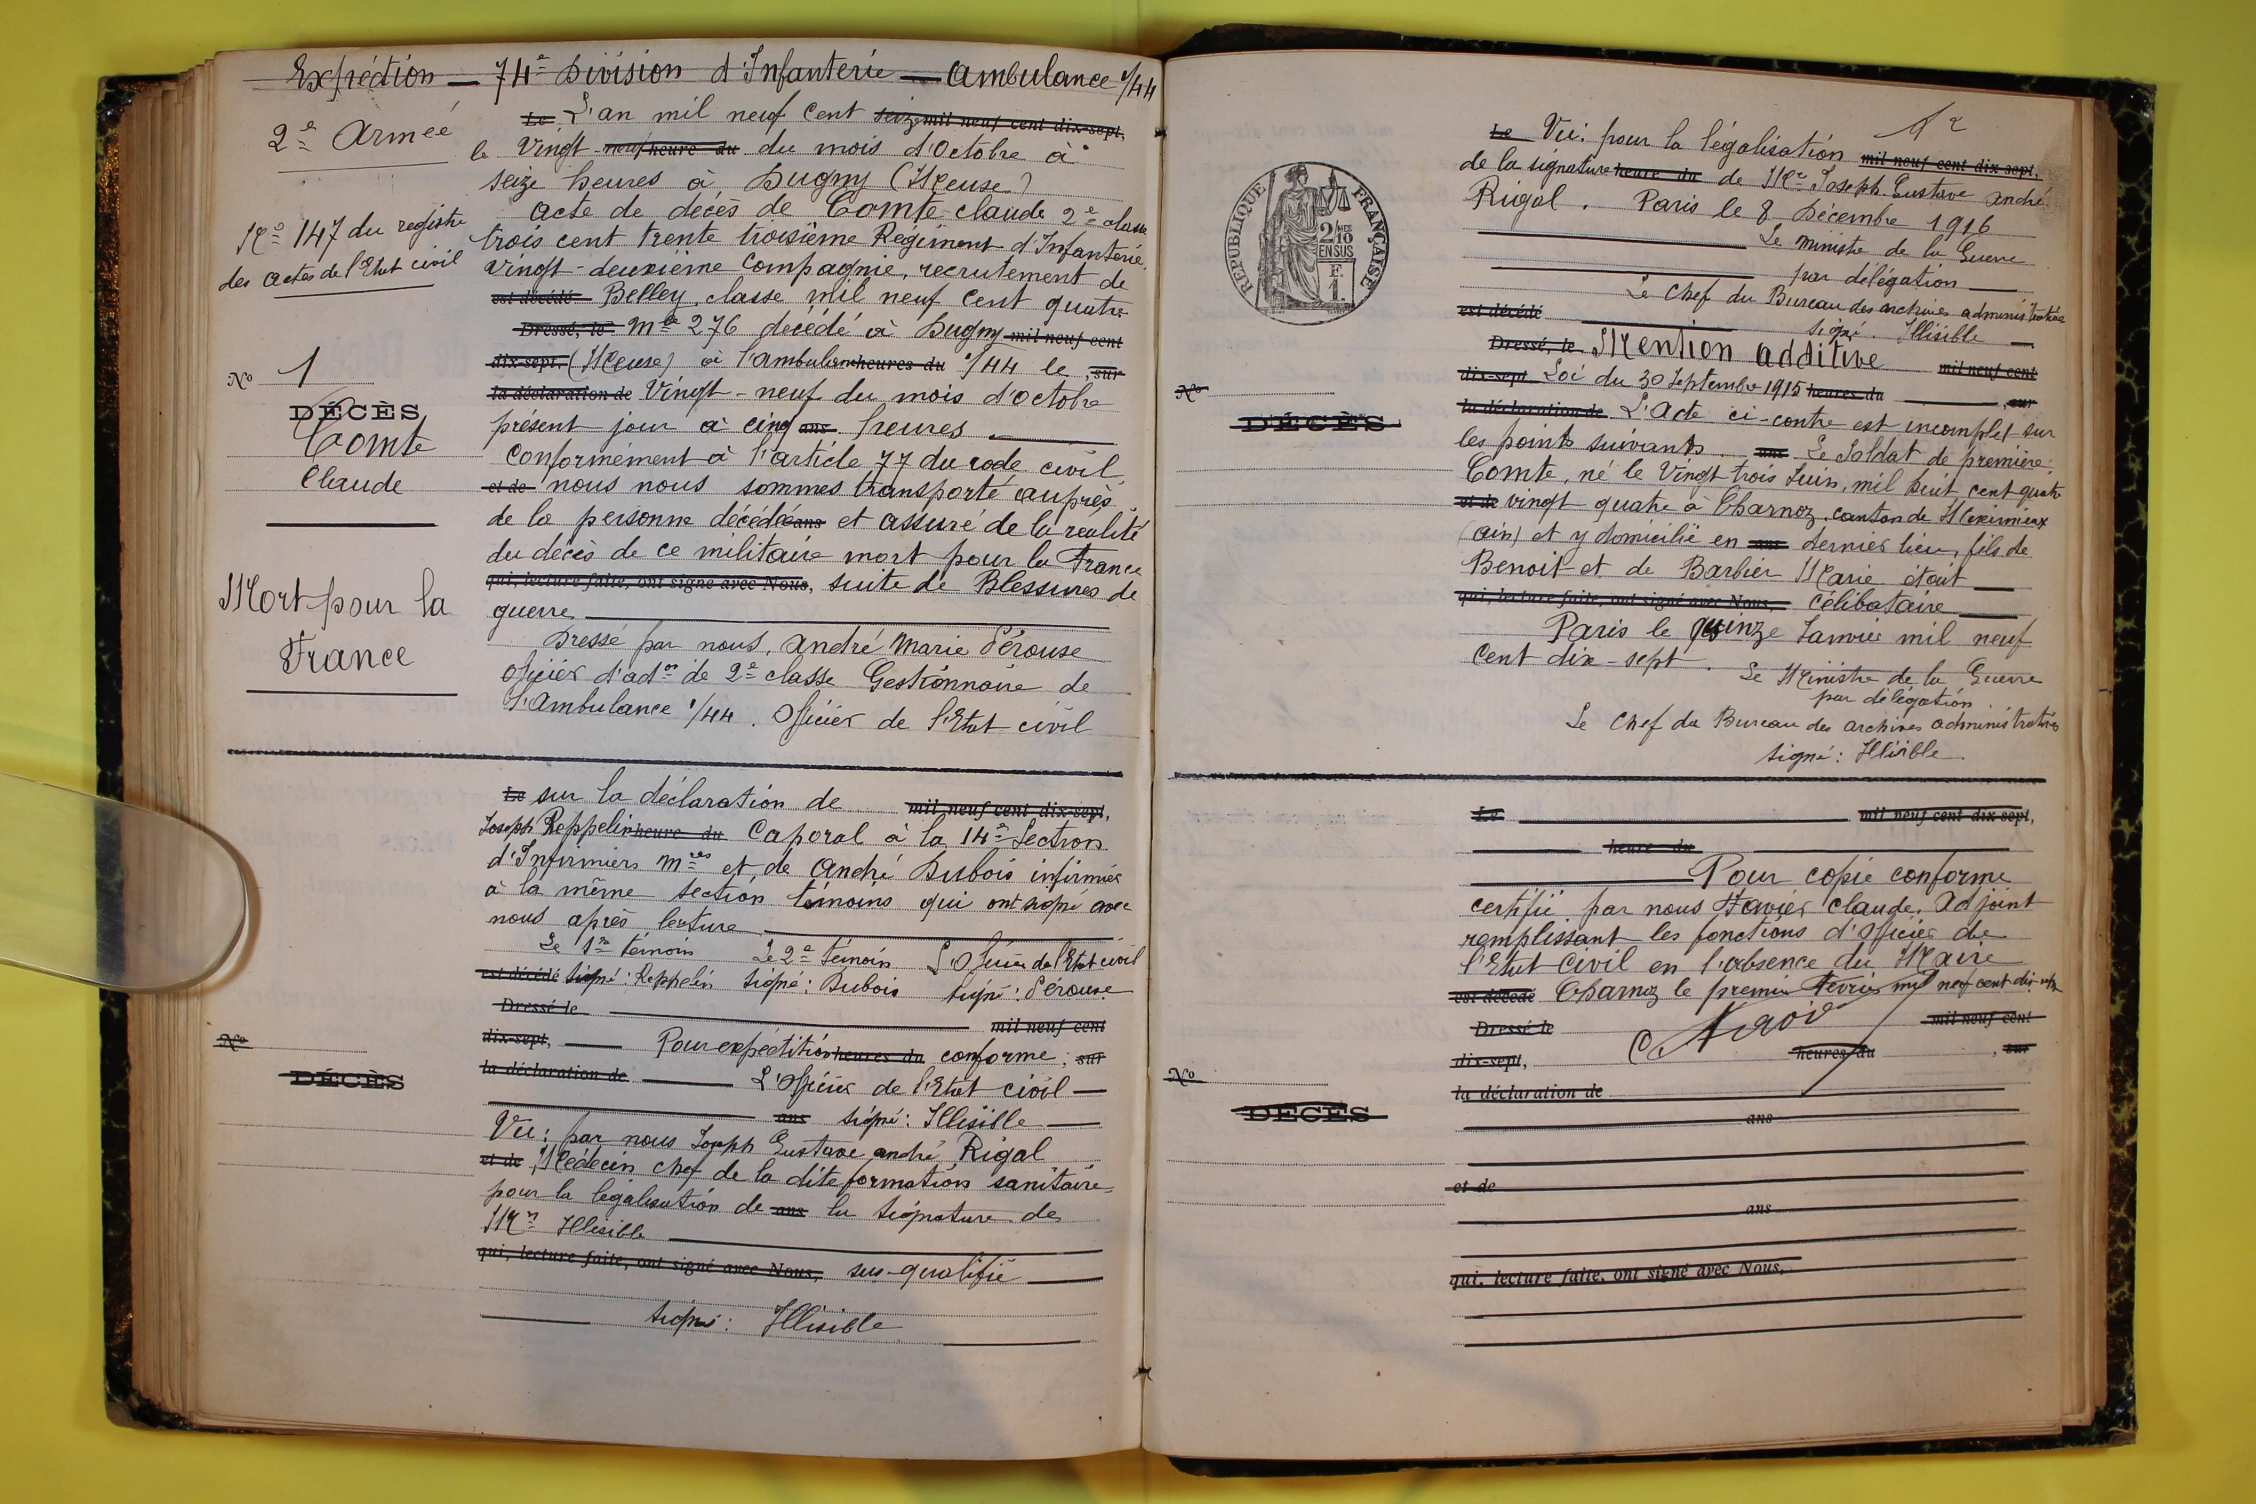 Expédition — 74e Division d'Infanterie — Ambulance 1/44
2e Armée
No 147 du registre
des actes de l'Etat civil
No 1
DÉCÈS
Comte
Claude
Mort pour la
France
Le L'an mil neuf cent seize mil neuf cent dix-sept,
le Vingt-neuf heure du du mois d'Octobre à
seize heures à Dugny (Meuse)
acte de décès de Comte Claude 2e classe
trois cent trente troisième Régiment d'Infanterie
vingt-deuxième Compagnie, recrutement de
est décédé Belley, classe mil neuf cent quatre
Dressé, le mle 276 décédé à Dugny mil neuf cent
dix-sept, (Meuse) à l'ambulance heures du 1/44 le , sur
la déclaration de Vingt-neuf du mois d'Octobre
présent jour à cinq ans heures
Conformément à l'article 77 du code civil
et de nous nous sommes transporté auprès
de la personne décédée ans et assuré de la réalité
du décès de ce militaire mort pour la France
qui, lecture faite, ont signé avec Nous, suite de Blessures de
guerre
Dressé par nous, André Marie Pérouse
officier d'adon de 2e classe Gestionnaire de
l'Ambulance 1/44. Officier de l'Etat civil
Le sur la déclaration de mil neuf cent dix-sept,
Joseph Reppelin heure du Caporal à la 14e Section
d'Infirmiers mres et de André Dubois infirmier
à la même section témoins qui ont signé avec
nous après lecture
Le 1er témoin Le 2e témoin L'Officier de l'Etat civil
est décédé Signé : Reppelin Signé : Dubois Signé : Pérouse
Dressé le mil neuf cent
dix-sept, Pour expédition heures du conforme , sur
la déclaration de L'Officier de l'Etat civil
ans signé : Illisible
No
DÉCÈS
Vu : par nous Joseph Gustave André Rigal
et de Médecin chef de la dite formation sanitaire
pour la légalisation de ans la signature de
Mr Illisible
qui, lecture faite, ont signé avec Nous, sus-qualifié
signé : Illisible
RÉPUBLIQUE FRANÇAISE
2/10 EN SUS
F. 1.
Le Vu : pour la légalisation mil neuf cent dix-sept,
de la signature heure du de Mr Joseph Gustave André
Rigal. Paris le 8 Décembre 1916
Le ministre de la Guerre
par délégation
Le Chef du Bureau des archives administratives
est décédé signé. Illisible
Dressé, le Mention additive mil neuf cent
dix-sept Loi du 30 Septembre 1915 heures du , sur
No
DÉCÈS
la déclaration de L'Acte ci-contre est incomplet sur
les points suivants. ans Le Soldat de première
Comte, né le Vingt trois Juin, mil huit cent quatre
et de vingt quatre à Charnoz, canton de Meximieux
(Ain) et y domicilié en ans dernier lieu, fils de
Benoit et de Barbier Marie était
qui, lecture faite, ont signé avec Nous, célibataire
Paris le quinze Janvier mil neuf
cent dix-sept. Le Ministre de la Guerre
par délégation
Le Chef du Bureau des archives administratives
signé : Illisible
Le mil neuf cent dix-sept,
heure du
Pour copie conforme
certifié par nous Claude, Adjoint
remplissant les fonctions d'officier de
l'Etat civil en l'absence du Maire
est décédé Charnoz le premier Février mil neuf cent dix-sept
Dressé le mil neuf cent
dix-sept, heures du , sur
No
DÉCÈS
la déclaration de
ans
et de
ans
qui, lecture faite, ont signé avec Nous,